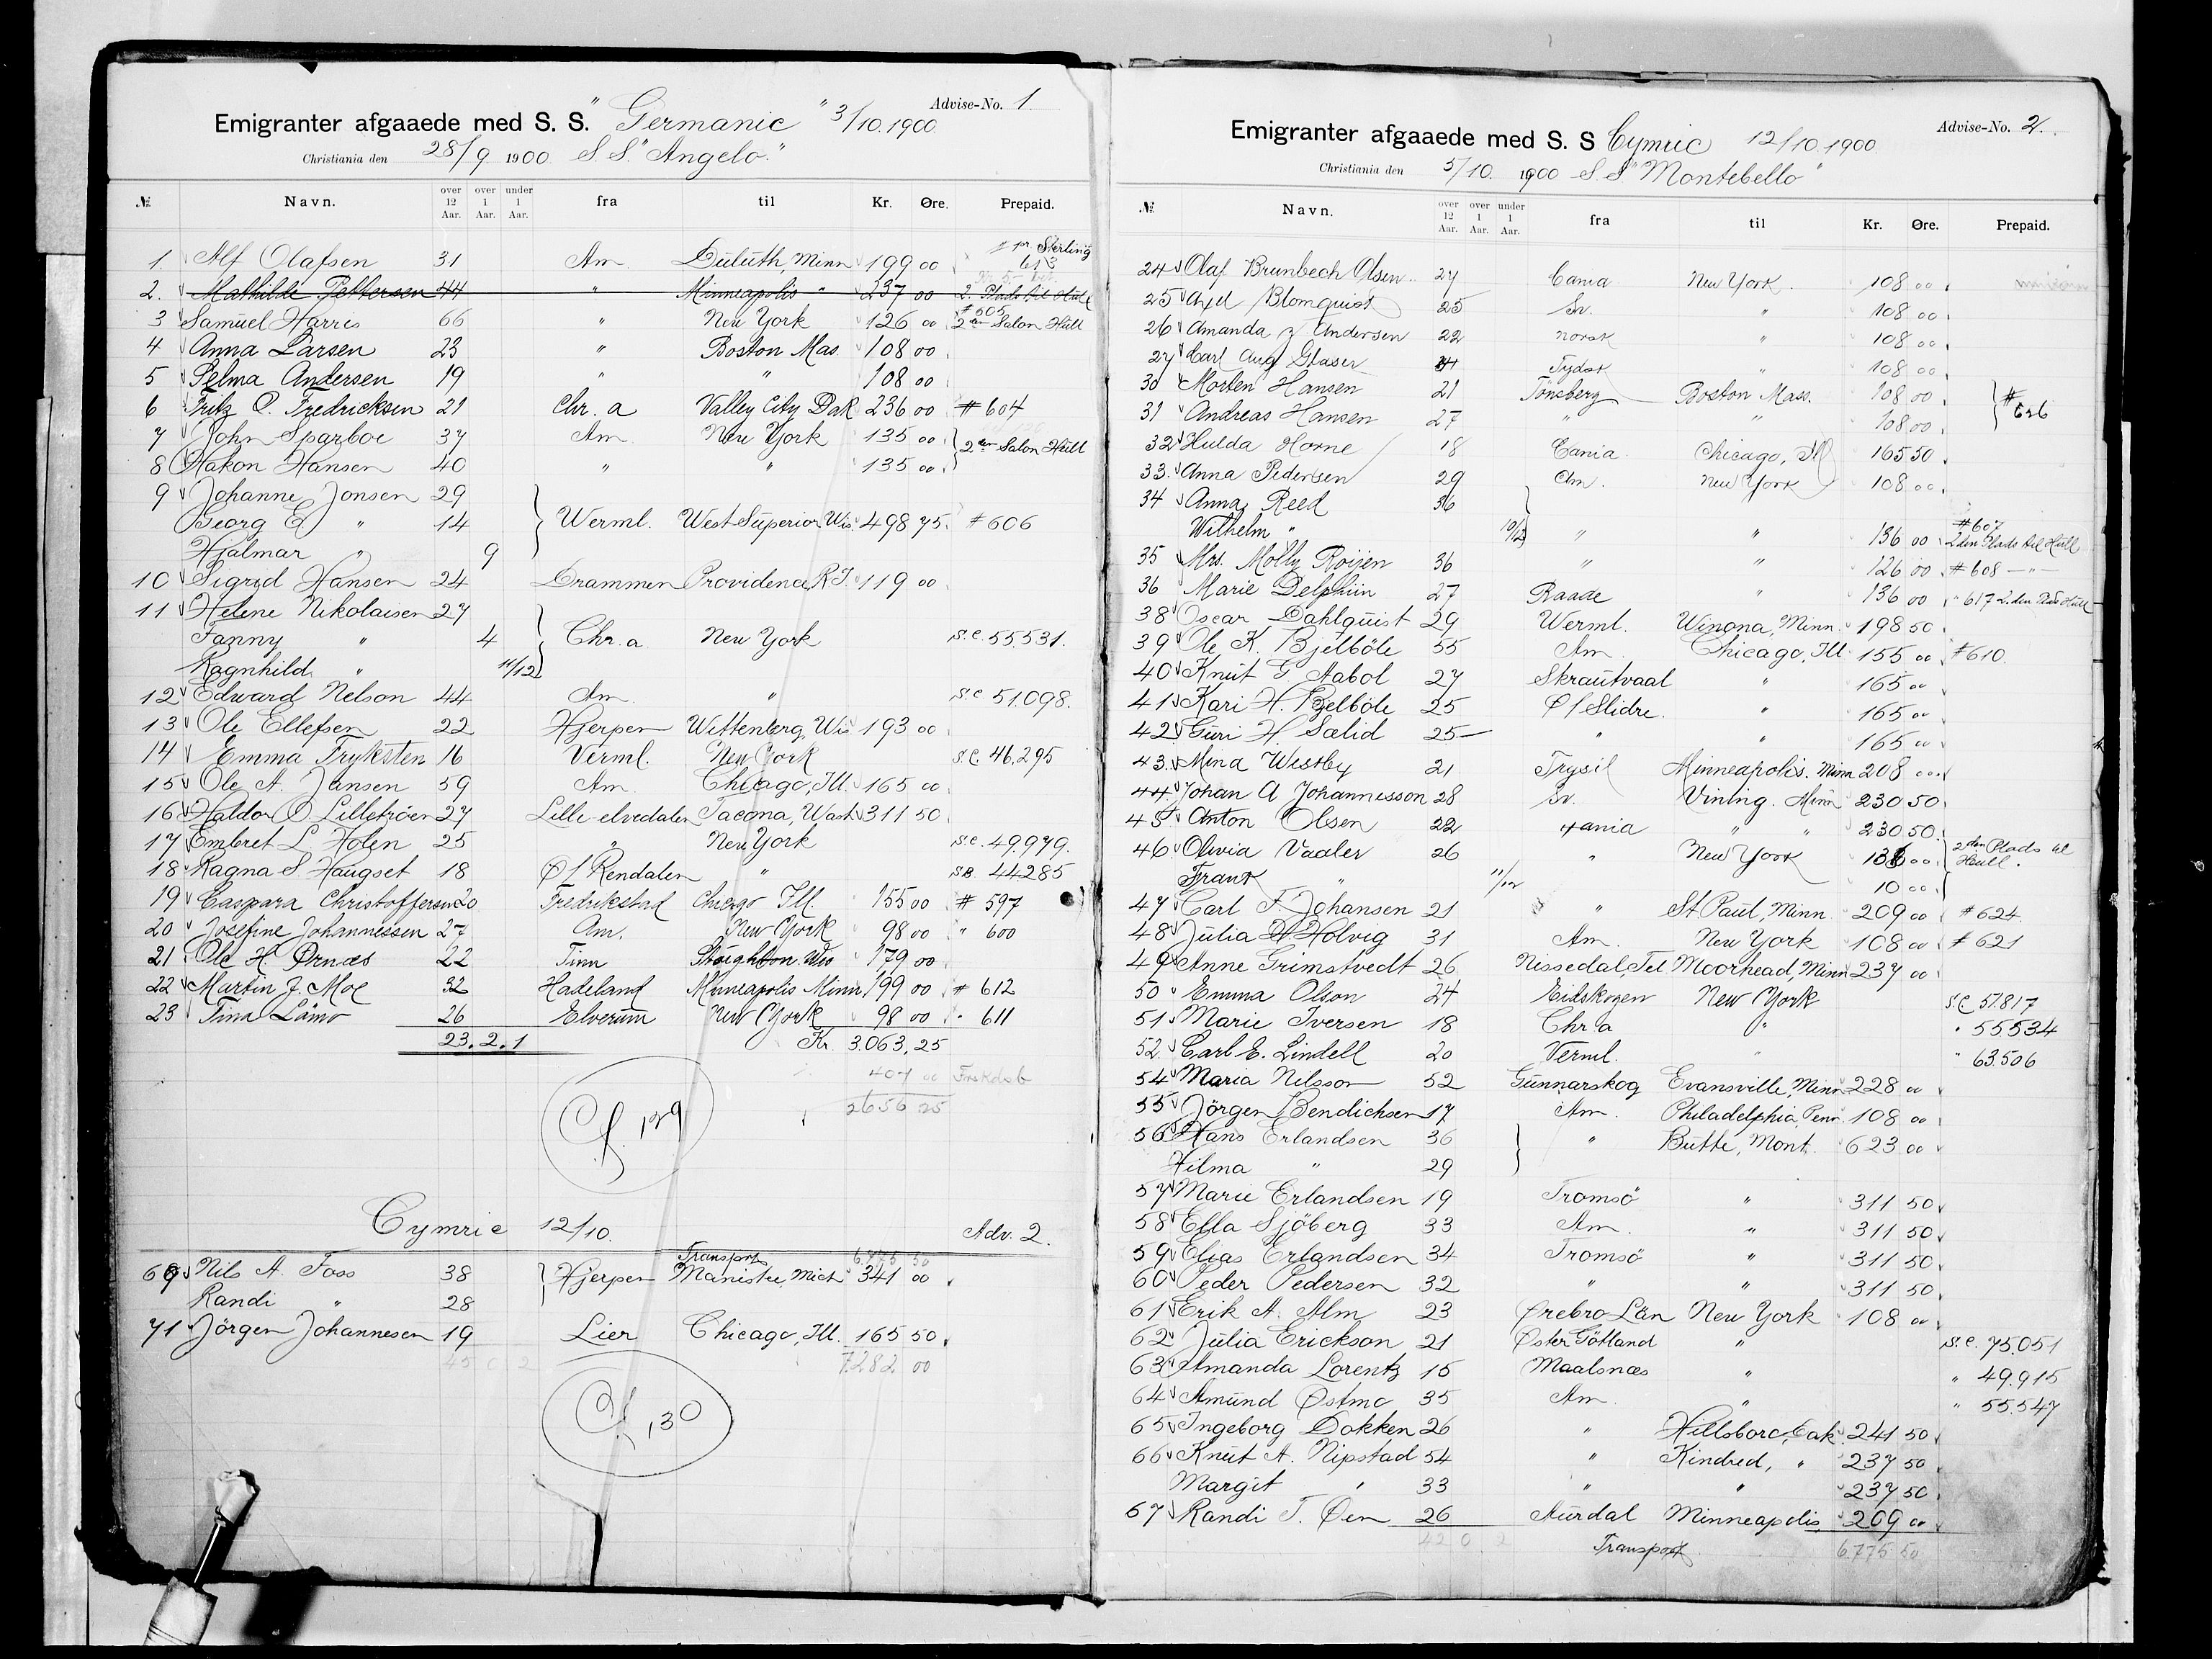 Advise-No. 1
Emigranter afgaaede med S. S. "Germanic" 3/10.1900.
Christiania den 28/9 1900 S.S. "Angelo."
№ Navn. over 12 Aar. over 1 Aar. under 1 Aar. fra til Kr. Øre. Prepaid.
1. Alf Olafsen 31 Am. Duluth, Minn 199 00 " pr. Sterling 613
2. Mathilde Pettersen 44 " Minneapolis " 237 00 2. Plads til Hull
3 Samuel Harris 66 " New York 126 00 # 605 2den Salon Hull
4 Anna Larsen 23 " Boston Mas. 108 00
5 Selma Andersen 19 " " 108 00
6 Fritz O. Fredricksen 21 Chr. a Valley City Dak 236 00 # 604
7 John Sparboe 37 Am. New York 135 00 } 2den Salon Hull
8 Hakon Hansen 40 " " 135 00
9 Johanne Jonsen 29
Georg E. " 14 } Werml. West Superior Wis. 498 75. # 606
Hjalmar " 9
10 Sigrid Hansen 24 Drammen Providence, R.I. 119 00
11 Helene Nikolaisen 27
Fanny " 4 } Chr. a New York S.C. 55531.
Ragnhild " 11/12
12 Edward Nelson 44 Am. " S.C. 51.098.
13 Ole Ellefsen 22 Hjerpen Wittenberg, Wis 193 00
14 Emma Fryksten 16 Verml. New York S.C. 46.295
15 Ole A. Jansen 59 Am. Chicago, Ill. 165 00
16 Haldor O Lilletröen 27 Lille-elvedalen Tacoma, Wash 311 50
17 Embret L. Holen 25 " New York S.C. 49.979.
18 Ragna S. Haugset 18 Ø/ Rendalen " SB 44285
19 Caspara Christoffersen 20 Fredrikstad Chicago Ill. 155 00 # 597
20 Josefine Johannessen 27 Am. New York 98 00 " 600
21 Ole H. Ornæs 22 Tinn Stoughton Wis 179 00
22 Martin J. Moe 32 Hadeland Minneapolis Minn 199 00 # 612
23 Tina Lämo 26 Elverum New York 98 00 " 611
23. 2. 1 Kr. 3.063, 25
407 00
2656 25
Cf. 129
Cymric 12/10. Adv. 2.
Transport 6775 50
69 Nils A. Foss 38 } Hjerpen Manistee, Mich 341 00
Randi " 28
71 Jörgen Johannesen 19 Lier Chicago, Ill. 165 50
45 0 2 7.282. 00
Cf. 130
Advise-No. 2.
Emigranter afgaaede med S. S Cymric 12/10.1900
Christiania den 5/10. 1900 S.S "Montebello"
№ Navn. over 12 Aar. over 1 Aar. under 1 Aar. fra til Kr. Øre. Prepaid.
24 Olaf Brunbech Olsen 27 Cania New York. 108 00
25 Axel Blomquist 25 Sv. " 108 00
26 Amanda Andersen 22 norsk " 108 00
27 Carl Aug Glaser Tydsk " 108 00
30 Morten Hansen 21 Tönsberg Boston Mass. 108 00 } # 626
31 Andreas Hansen 27 " " 108 00
32 Hulda Horne 18 Cania Chicago, Ill 165 50
33. Anna Pedersen 29 Am. New York 108 00
34 Anna Reed 36
Wilhelm " 10/12 } " " 136 00 #607 2den Plads til Hull
35 Mrs. Molly Roijen 36 " " 126 00 # 608 — " —
36 Marie Delphin 27 Raade 136 00 " 617 2.den Plads Hull
38 Oscar Dahlquist 29 Werml. Winona, Minn. 198 50
39 Ole K. Bjelböle 55 Am. Chicago, Ill. 155 00 # 610.
40 Knut G Aabol 27 Skrautvaal " 165 00
41 Kari H. Bjelböle 25 Ø/Slidre. " 165 00
42 Guri H Sælid 25 " " 165 00
43. Mina Westby 21 Trysil Minneapolis. Minn 208 00
44. Johan A Johannesson 28 Sv. Vining. Minn 230 50
45 Anton Olsen 22 Xania " " 230 50
46 Olivia Vaaler 26 " New York 136 00 } 2den Plads til Hull.
Frank " 11/12 10 00
47 Carl F. Johansen 21 " St Paul, Minn 209 00 # 624.
48 Julia H Holvig 31 Am. New York 108 00 # 621
49 Anne Grimstvedt 26 Nissedal, Tel. Moorhead, Minn 237 00
50 Emma Olson 24 Eidskogen New York S.C. 51.817
51 Marie Iversen 18 Chr a " " 55534
52. Carl E. Lindell 20 Verml. " " 63506
54 Maria Nilsson 52 Gunnarskog Evansville, Minn 228 00
55 Jörgen Bendichsen 17 Am. Philadelphia, Penn. 108 00
56 Hans Erlandsen 36 } " Butte, Mont. 623 00
Hilma " 29
57 Marie Erlandsen 19 Tromsö " 311 50
58 Ella Sjöberg 33 Am. " 311 50
59 Elias Erlandsen 34 Tromsö " 311 50
60 Peder Pedersen 32 " " 311 50
61 Erik A. Alm 23 Ørebro-Län New York 108 00
62 Julia Erickson 21 Øster Götland " S.C. 75.051
63 Amanda Lorentz 15 Maalsnæs " " 49.915
64 Amund Østmo 35 Am. " " 55.547
65 Ingeborg Dokken 26 " Hillsboro, Dak. 241 50
66 Knut A. Nipstad 54 " Kindred, " 237 50
Margit " 33 " " 237 50
67 Randi T. Øen 26 Aurdal Minneapolis 209 00
42 0 2 Transport 6.775 50